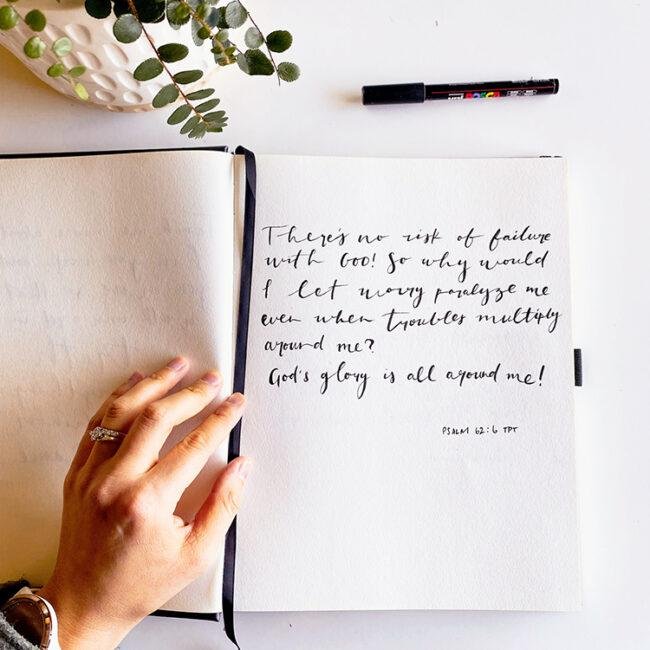 POSCA
There's no risk of failure
with God! So why would
I let worry paralyze me
even when troubles multiply
around me?
God's glory is all around me!
PSALM 62:6 TPT